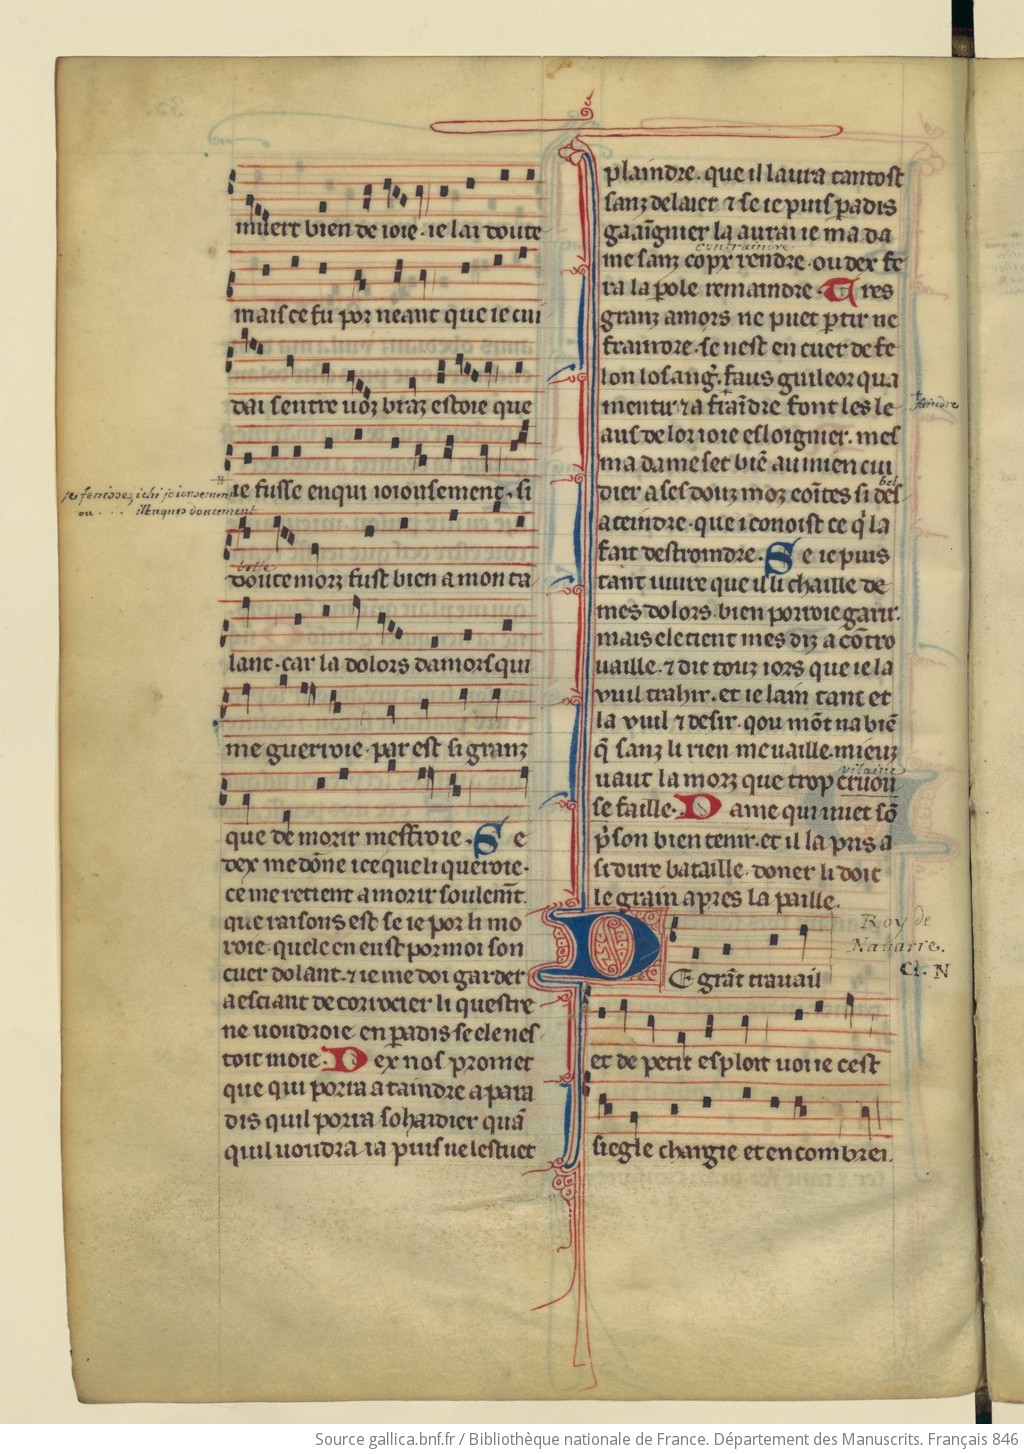 muert bien de ioie · ie lai doute
mais ce fu por neant que ie cui
dai sentre uoz braz estoie que
ie fusse enqui ioiousement · si
douce morz fust bien a mon ta
belle
lant · car la dolors damors qui
me guerroie · par est si granz
que de morir meffroie · Se
dex me dōne ice que li queroie ·
ce me retient a morir soulem̄t.
que raisons est se ie por li mo
roie · quele en eust por moi son
cuer dolant · ⁊ ie me doi garder
a esciant de corrocier li questre
ne uoudroie en ꝑadis se ele nes
toit moie · Dex nos promet
que qui porra ataindre a para
dis quil porra sohaidier quā
quil uoudra ia puis ne lestuet
plaindre · que il laura tantost
sanz delaier ⁊ se ie puis ꝑadis
gaāignier la aurai ie ma da
contraindre
me sanz rendre · ou dex fe
ra la ꝑole remaindre · Tres
granz amors ne puet ꝑtir ne
fraindre · se nest en cuer de fe
lon losang̓. faus guileor qua
mentir ⁊ a fraīdre font les le
faindre
aus de lor ioie esloignier. mes
ma dame set biē au mien cui
dier a ses douz moz coītes si des
bel
ataindre · que i conoist ce q̓ la
fait destroindre. Se ie puis
tant uiure que il li chaille de
mes dolors · bien porroie garir.
mais ele tient mes diz a cōtro
uaille · ⁊ dit touz iors que ie la
vuil trahir. et ie laim tant et
la vuil ⁊ desir. qou mōt na biē
q̄ sanz li rien me uaille · mieuz
vilaine
uaut la morz que trop criiou
se faille · Dame qui uuet sō
p̓son bien tenir. et il la pris a
si dure bataille · doner li doit
le grain apres la paille.
Roy de
Navarre.
Cl. N
DE grāt trauail
et de petit esploit uoi ie cest
siegle chargie et encombrei.
Source gallica.bnf.fr / Bibliothèque nationale de France. Département des Manuscrits. Français 846